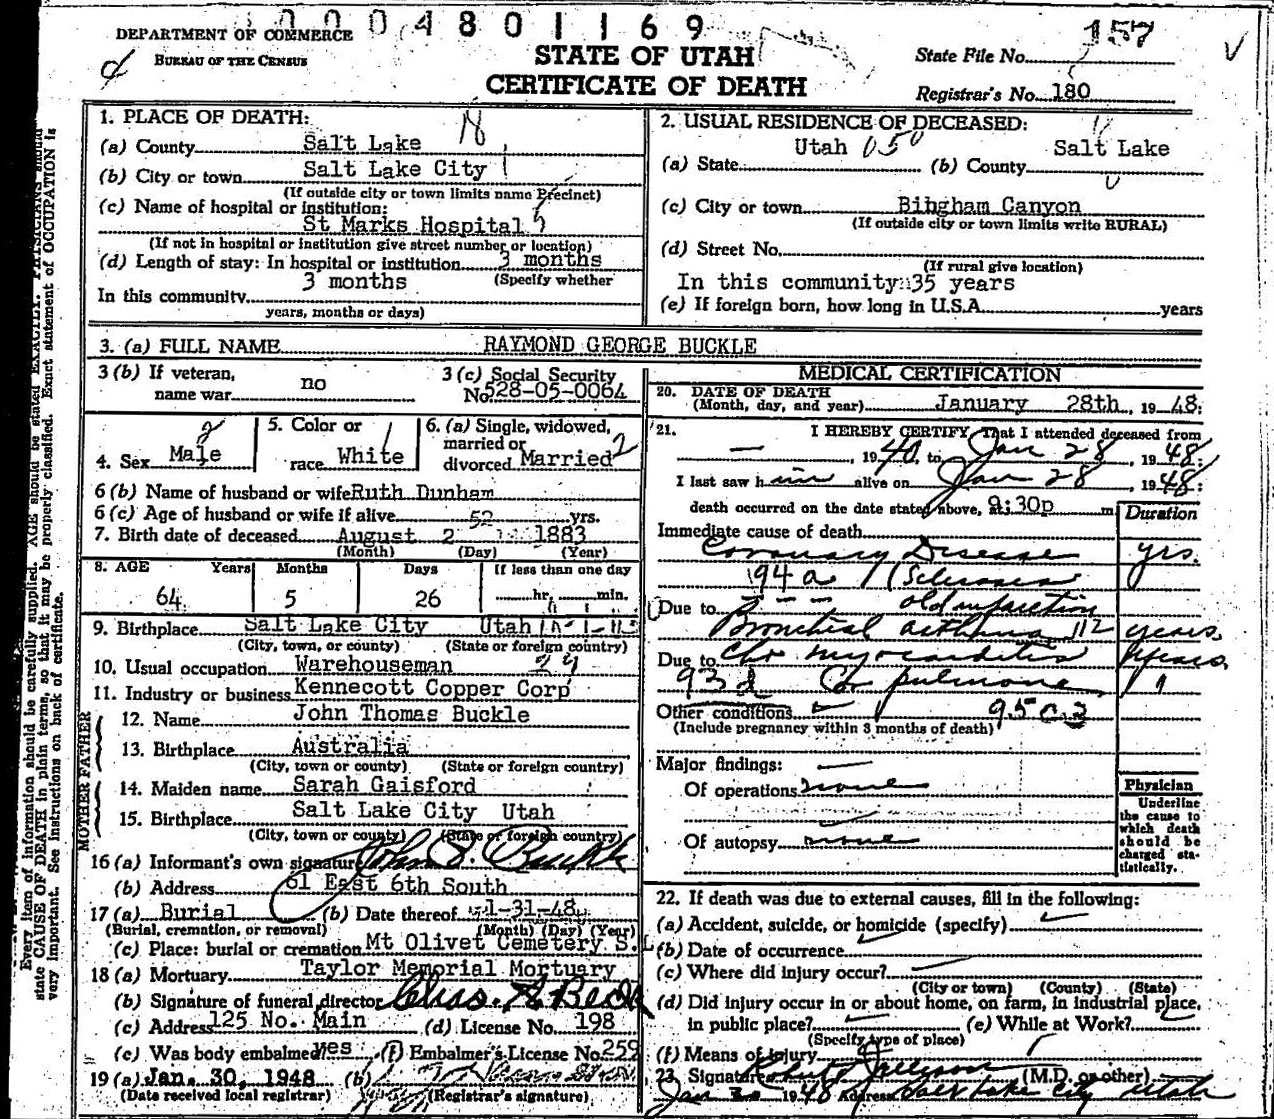 0004801169
DEPARTMENT OF COMMERCE
BUREAU OF THE CENSUS
STATE OF UTAH
CERTIFICATE OF DEATH
State File No. 157
Registrar's No. 180
1. PLACE OF DEATH:
(a) County Salt Lake
(b) City or town Salt Lake City
(If outside city or town limits name Precinct)
(c) Name of hospital or institution:
St Marks Hospital
(If not in hospital or institution give street number or location)
(d) Length of stay: In hospital or institution 3 months
3 months (Specify whether
In this community
years, months or days)
2. USUAL RESIDENCE OF DECEASED:
(a) State Utah 050 (b) County Salt Lake
(c) City or town Bingham Canyon
(If outside city or town limits write RURAL)
(d) Street No.
(If rural give location)
In this community 35 years
(e) If foreign born, how long in U.S.A. years
3. (a) FULL NAME RAYMOND GEORGE BUCKLE
3 (b) If veteran, name war no
3 (c) Social Security No. 528-05-0064
4. Sex Male
5. Color or race White
6. (a) Single, widowed, married or divorced Married
6 (b) Name of husband or wife Ruth Dunham
6 (c) Age of husband or wife if alive 52 yrs.
7. Birth date of deceased August 2 1883
(Month) (Day) (Year)
8. AGE Years Months Days If less than one day
64 5 26 hr. min.
9. Birthplace Salt Lake City Utah
(City, town, or county) (State or foreign country)
10. Usual occupation Warehouseman
11. Industry or business Kennecott Copper Corp
FATHER
12. Name John Thomas Buckle
13. Birthplace Australia
(City, town or county) (State or foreign country)
MOTHER
14. Maiden name Sarah Gaisford
15. Birthplace Salt Lake City Utah
(City, town or county) (State or foreign country)
16 (a) Informant's own signature John Buckle
(b) Address 61 East 6th South
17 (a) Burial (b) Date thereof 1-31-48
(Burial, cremation, or removal) (Month) (Day) (Year)
(c) Place: burial or cremation Mt Olivet Cemetery S.L
18 (a) Mortuary Taylor Memorial Mortuary
(b) Signature of funeral director Chas. A Beck
(c) Address 125 No. Main (d) License No. 198
(e) Was body embalmed yes (f) Embalmer's License No. 259
19 (a) Jan. 30, 1948 (b)
(Date received local registrar) (Registrar's signature)
MEDICAL CERTIFICATION
20. DATE OF DEATH
(Month, day, and year) January 28th, 1948:
21. I HEREBY CERTIFY, That I attended deceased from
— , 1940, to Jan 28, 1948:
I last saw him alive on Jan 28, 1948:
death occurred on the date stated above, at 9:30p m
Duration
Immediate cause of death
Coronary Disease yrs.
94a (Sclerosis
Due to old infarction
Bronchial asthma 112 years
Due to Chr myocarditis years
93d Cor pulmonale "
Other conditions 95c3
(Include pregnancy within 3 months of death)
Major findings:
Of operations none
Of autopsy none
Physician
Underline the cause to which death should be charged statistically.
22. If death was due to external causes, fill in the following:
(a) Accident, suicide, or homicide (specify)
(b) Date of occurrence
(c) Where did injury occur?
(City or town) (County) (State)
(d) Did injury occur in or about home, on farm, in industrial place,
in public place? (e) While at Work?
(Specify type of place)
(f) Means of injury
23. Signature Robert (M.D. or other)
Jan 1948 Address Salt Lake City Utah
Every item of information should be carefully supplied. AGE should be stated EXACTLY. PHYSICIANS should
state CAUSE OF DEATH in plain terms, so that it may be properly classified. Exact statement of OCCUPATION is
very important. See instructions on back of certificate.